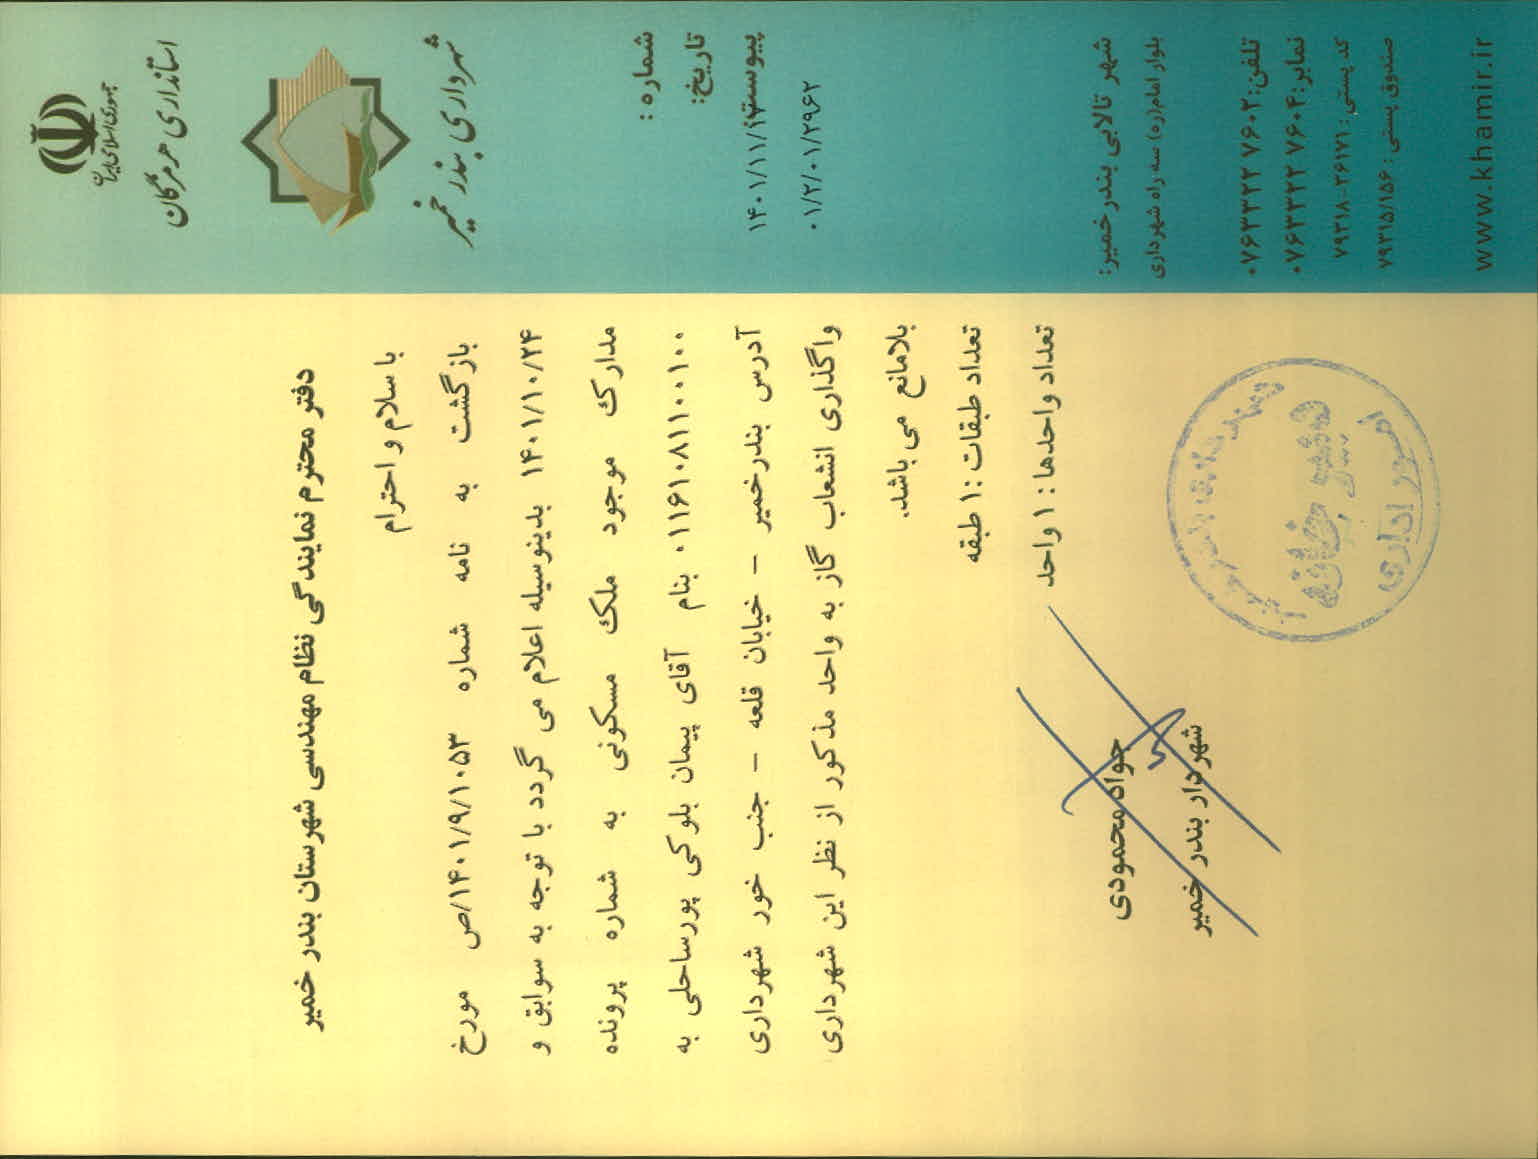 جمهوری اسلامی ایران
استانداری هرمزگان
شهرداری بندر خمیر
شماره:
تاریخ:
پیوست:
۱۴۰۱/۱۱/۱۲
۰۱/۲/۰۱/۲۹۶۲
شهر تالابی بندر خمیر:
بلوار امام(ره) سه راه شهرداری
تلفن: ۰۷۶۳۳۲۲ ۷۶۰۲
نمابر: ۰۷۶۳۳۲۲ ۷۶۰۴
کد پستی: ۷۹۳۱۸-۲۶۱۷۱
صندوق پستی: ۷۹۳۱۵/۱۵۶
www.khamir.ir
دفتر محترم نمایندگی نظام مهندسی شهرستان بندر خمیر
با سلام و احترام
بازگشت به نامه شماره ۱۴۰۱/۹/۱۰۵۳/ص مورخ
۱۴۰۱/۱۰/۲۴ بدینوسیله اعلام می گردد با توجه به سوابق و
مدارک موجود ملک مسکونی به شماره پرونده
۰۱۱۶۱۰۸۱۱۰۰۱۰۰ بنام آقای پیمان بلوکی پورساحلی به
آدرس بندرخمیر - خیابان قلعه - جنب خور شهرداری
واگذاری انشعاب گاز به واحد مذکور از نظر این شهرداری
بلامانع می باشد.
تعداد طبقات :۱ طبقه
تعداد واحدها : ۱ واحد
جواد محمودی
شهردار بندر خمیر
دبیرخانه
امور اداری